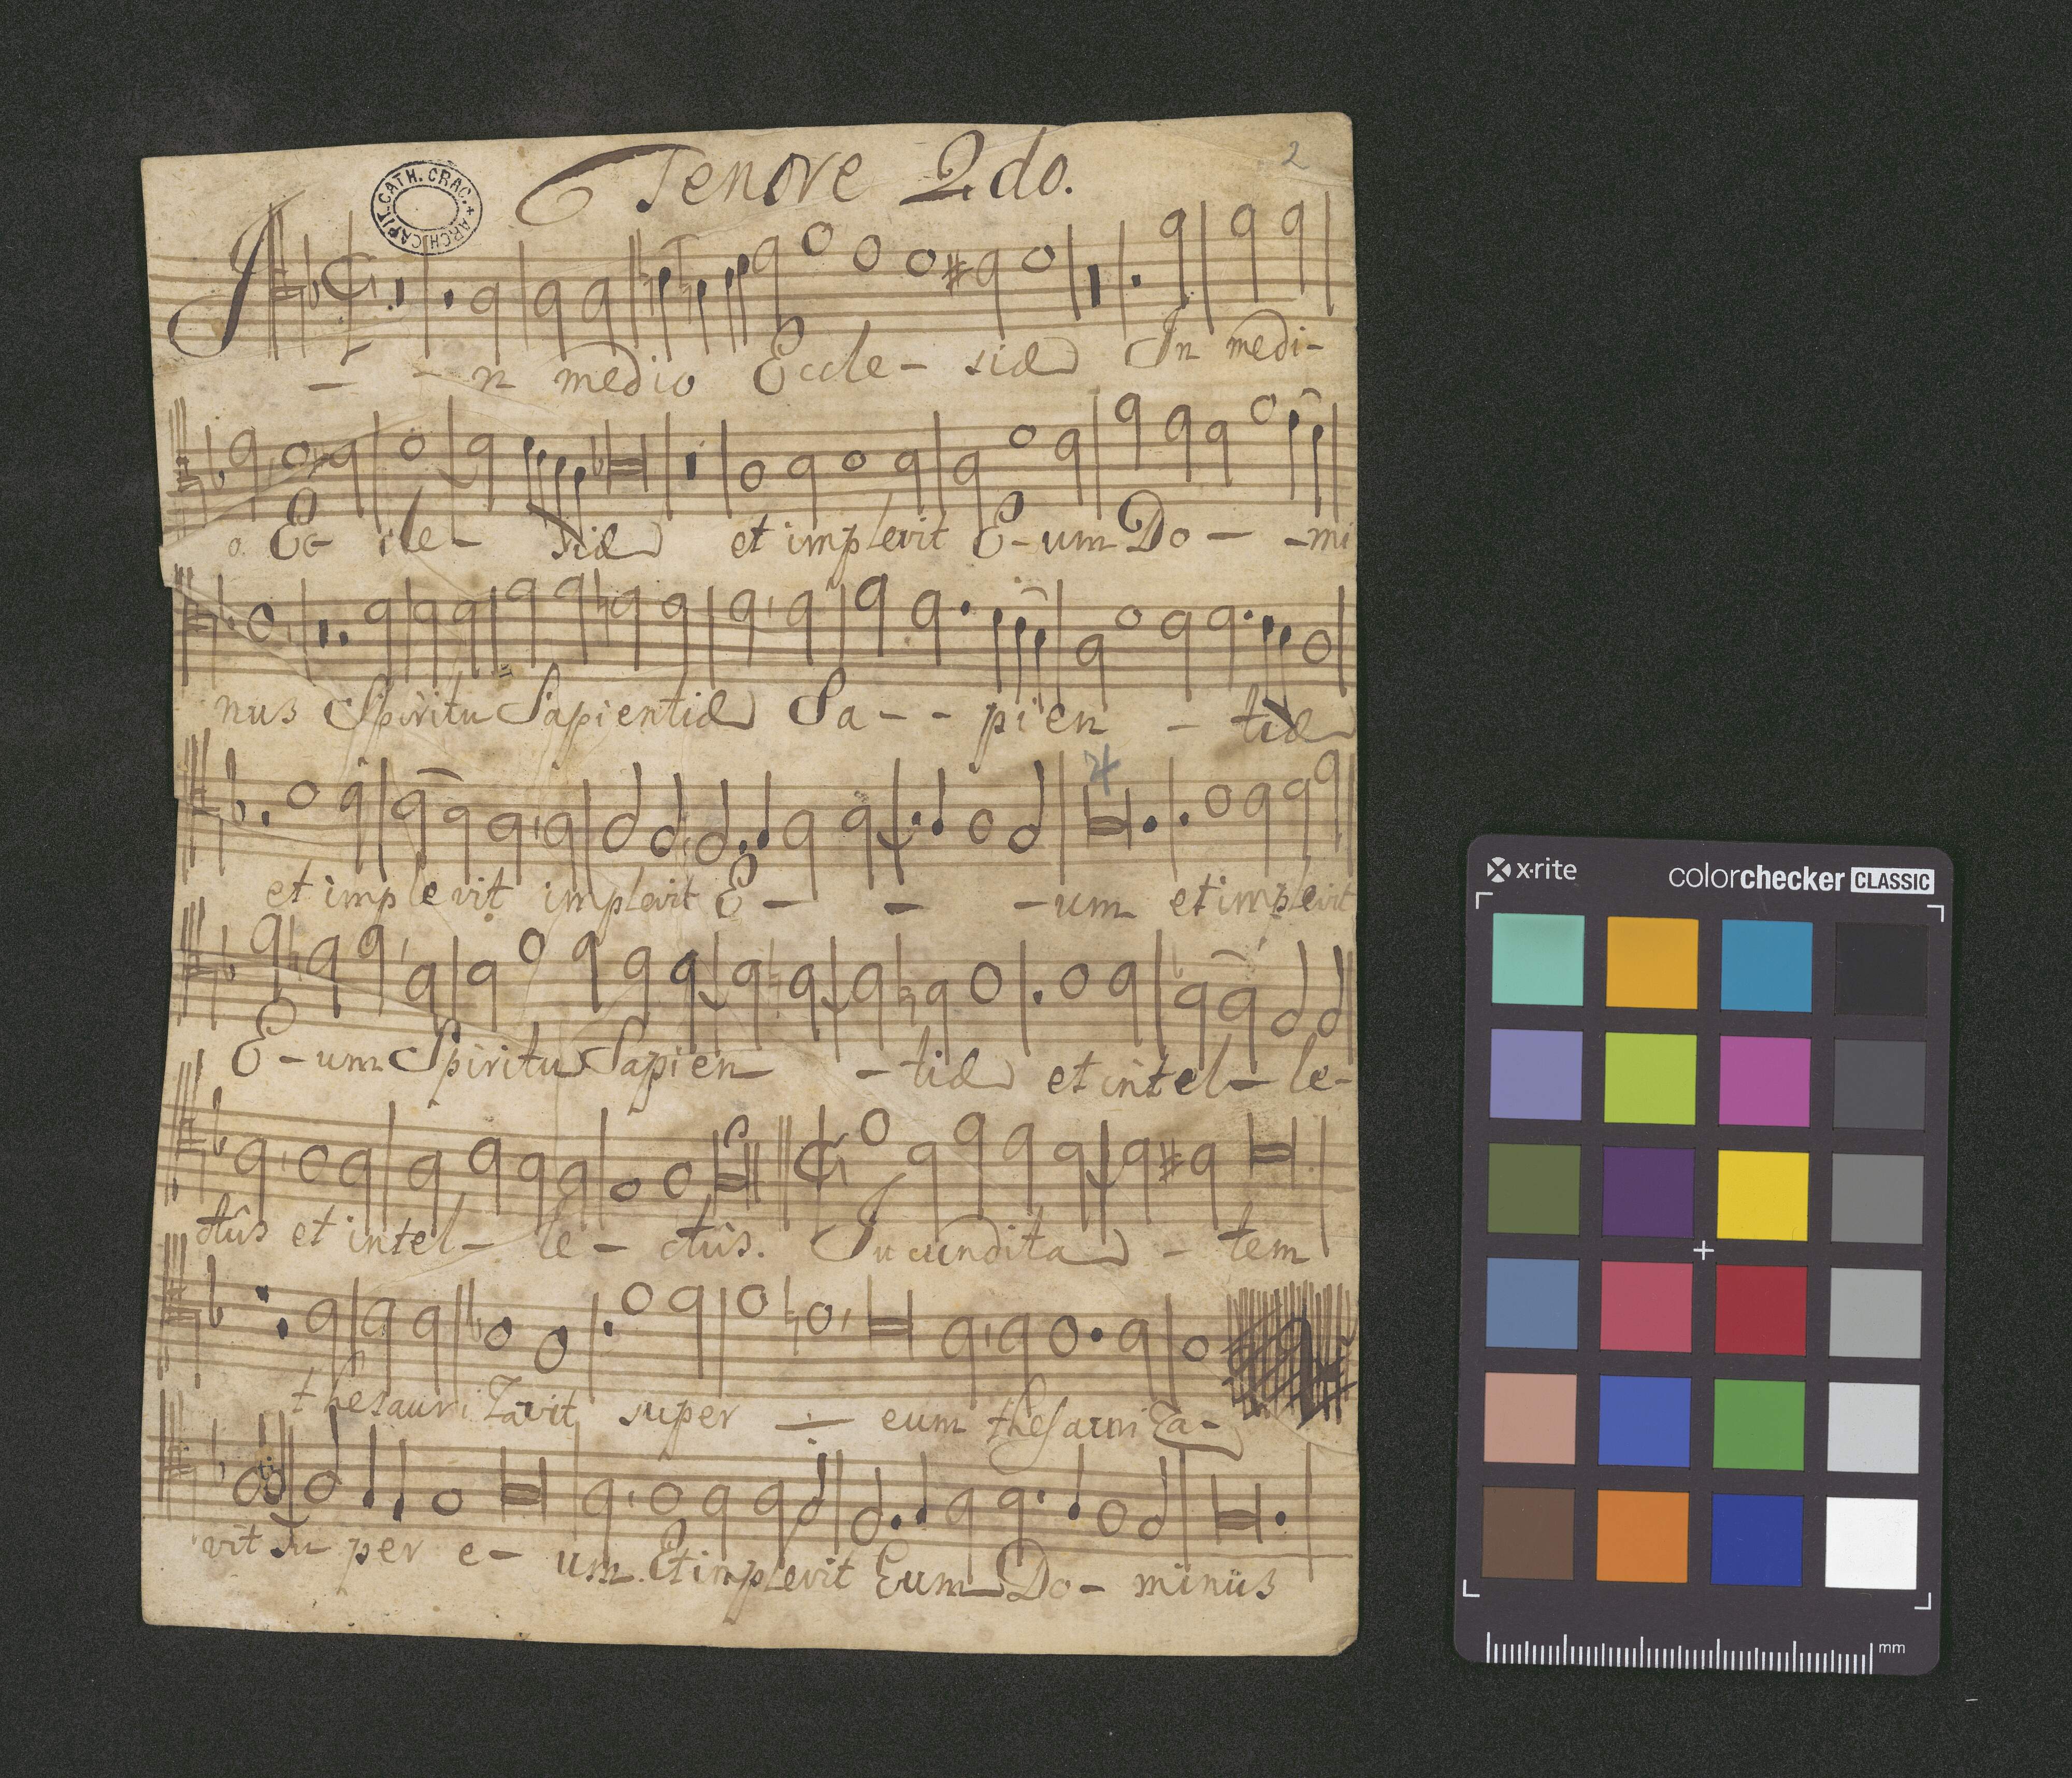 Tenore 2do.
2
ARCH. CAPIT. CATH. CRAC.
In medio Eccle- siæ In medi-
o Ec- cle- siæ et implevit E-um Do- -mi
nus Spiritu Sapientiæ Sa-- pien - tiæ
et implevit implevit E- - -um et implevit
E-um Spiritu Sapien - tiæ et intel- le-
ctûs et intel- le- ctûs. Jucundita - tem
thesaurizavit super - eum thesauriza-
vit su- per e- um. Et implevit Eum Do- minûs
x·rite
colorchecker CLASSIC
mm